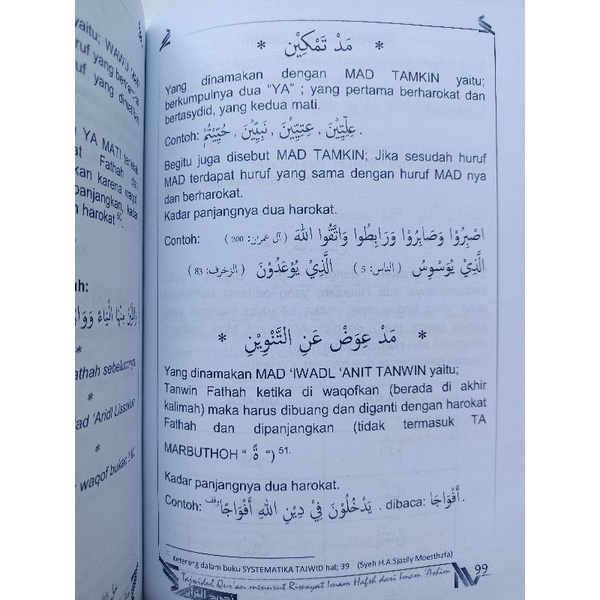 yaitu; WAWU
huruf yang
yang berharokat
YA MATI
Fathah
karena waqof
panjangkan,
harokat
fathah sebelumnya
* مَدْ تَمْكِيْن *
Yang dinamakan dengan MAD TAMKIN yaitu;
berkumpulnya dua “YA” ; yang pertama berharokat dan
bertasydid, yang kedua mati.
Contoh: عِلِّيِّيْنَ , عِتِيِّيْنَ , نَبِيِّيْنَ , حُيِّيْتُمْ .
Begitu juga disebut MAD TAMKIN; Jika sesudah huruf
MAD terdapat huruf yang sama dengan huruf MAD nya
dan berharokat.
Kadar panjangnya dua harokat.
Contoh: اصْبِرُوْا وَصَابِرُوْا وَرَابِطُوْا وَاتَّقُوا اللهَ (آل عمران: 200)
الَّذِيْ يُوَسْوِسُ (الناس: 5) الَّذِيْ يُوْعَدُوْنَ (الزخرف: 83)
* مَدْ عِوَضْ عَنِ التَّنْوِيْنِ *
Yang dinamakan MAD ‘IWADL ‘ANIT TANWIN yaitu;
Tanwin Fathah ketika di waqofkan (berada di akhir
kalimah) maka harus dibuang dan diganti dengan harokat
Fathah dan dipanjangkan (tidak termasuk TA
MARBUTHOH “ ةً “) 51.
Kadar panjangnya dua harokat.
Contoh: يَدْخُلُوْنَ فِيْ دِيْنِ اللهِ أَفْوَاجًا وقف dibaca: أَفْوَاجَا .
Keterang dalam buku SYSTEMATIKA TAJWID hal; 39 (Syeh H.A.Sjazily Moesthafa)
Tajwidul Qur'an menurut Riwayat Imam Hafsh dari Imam 'Ashim 99